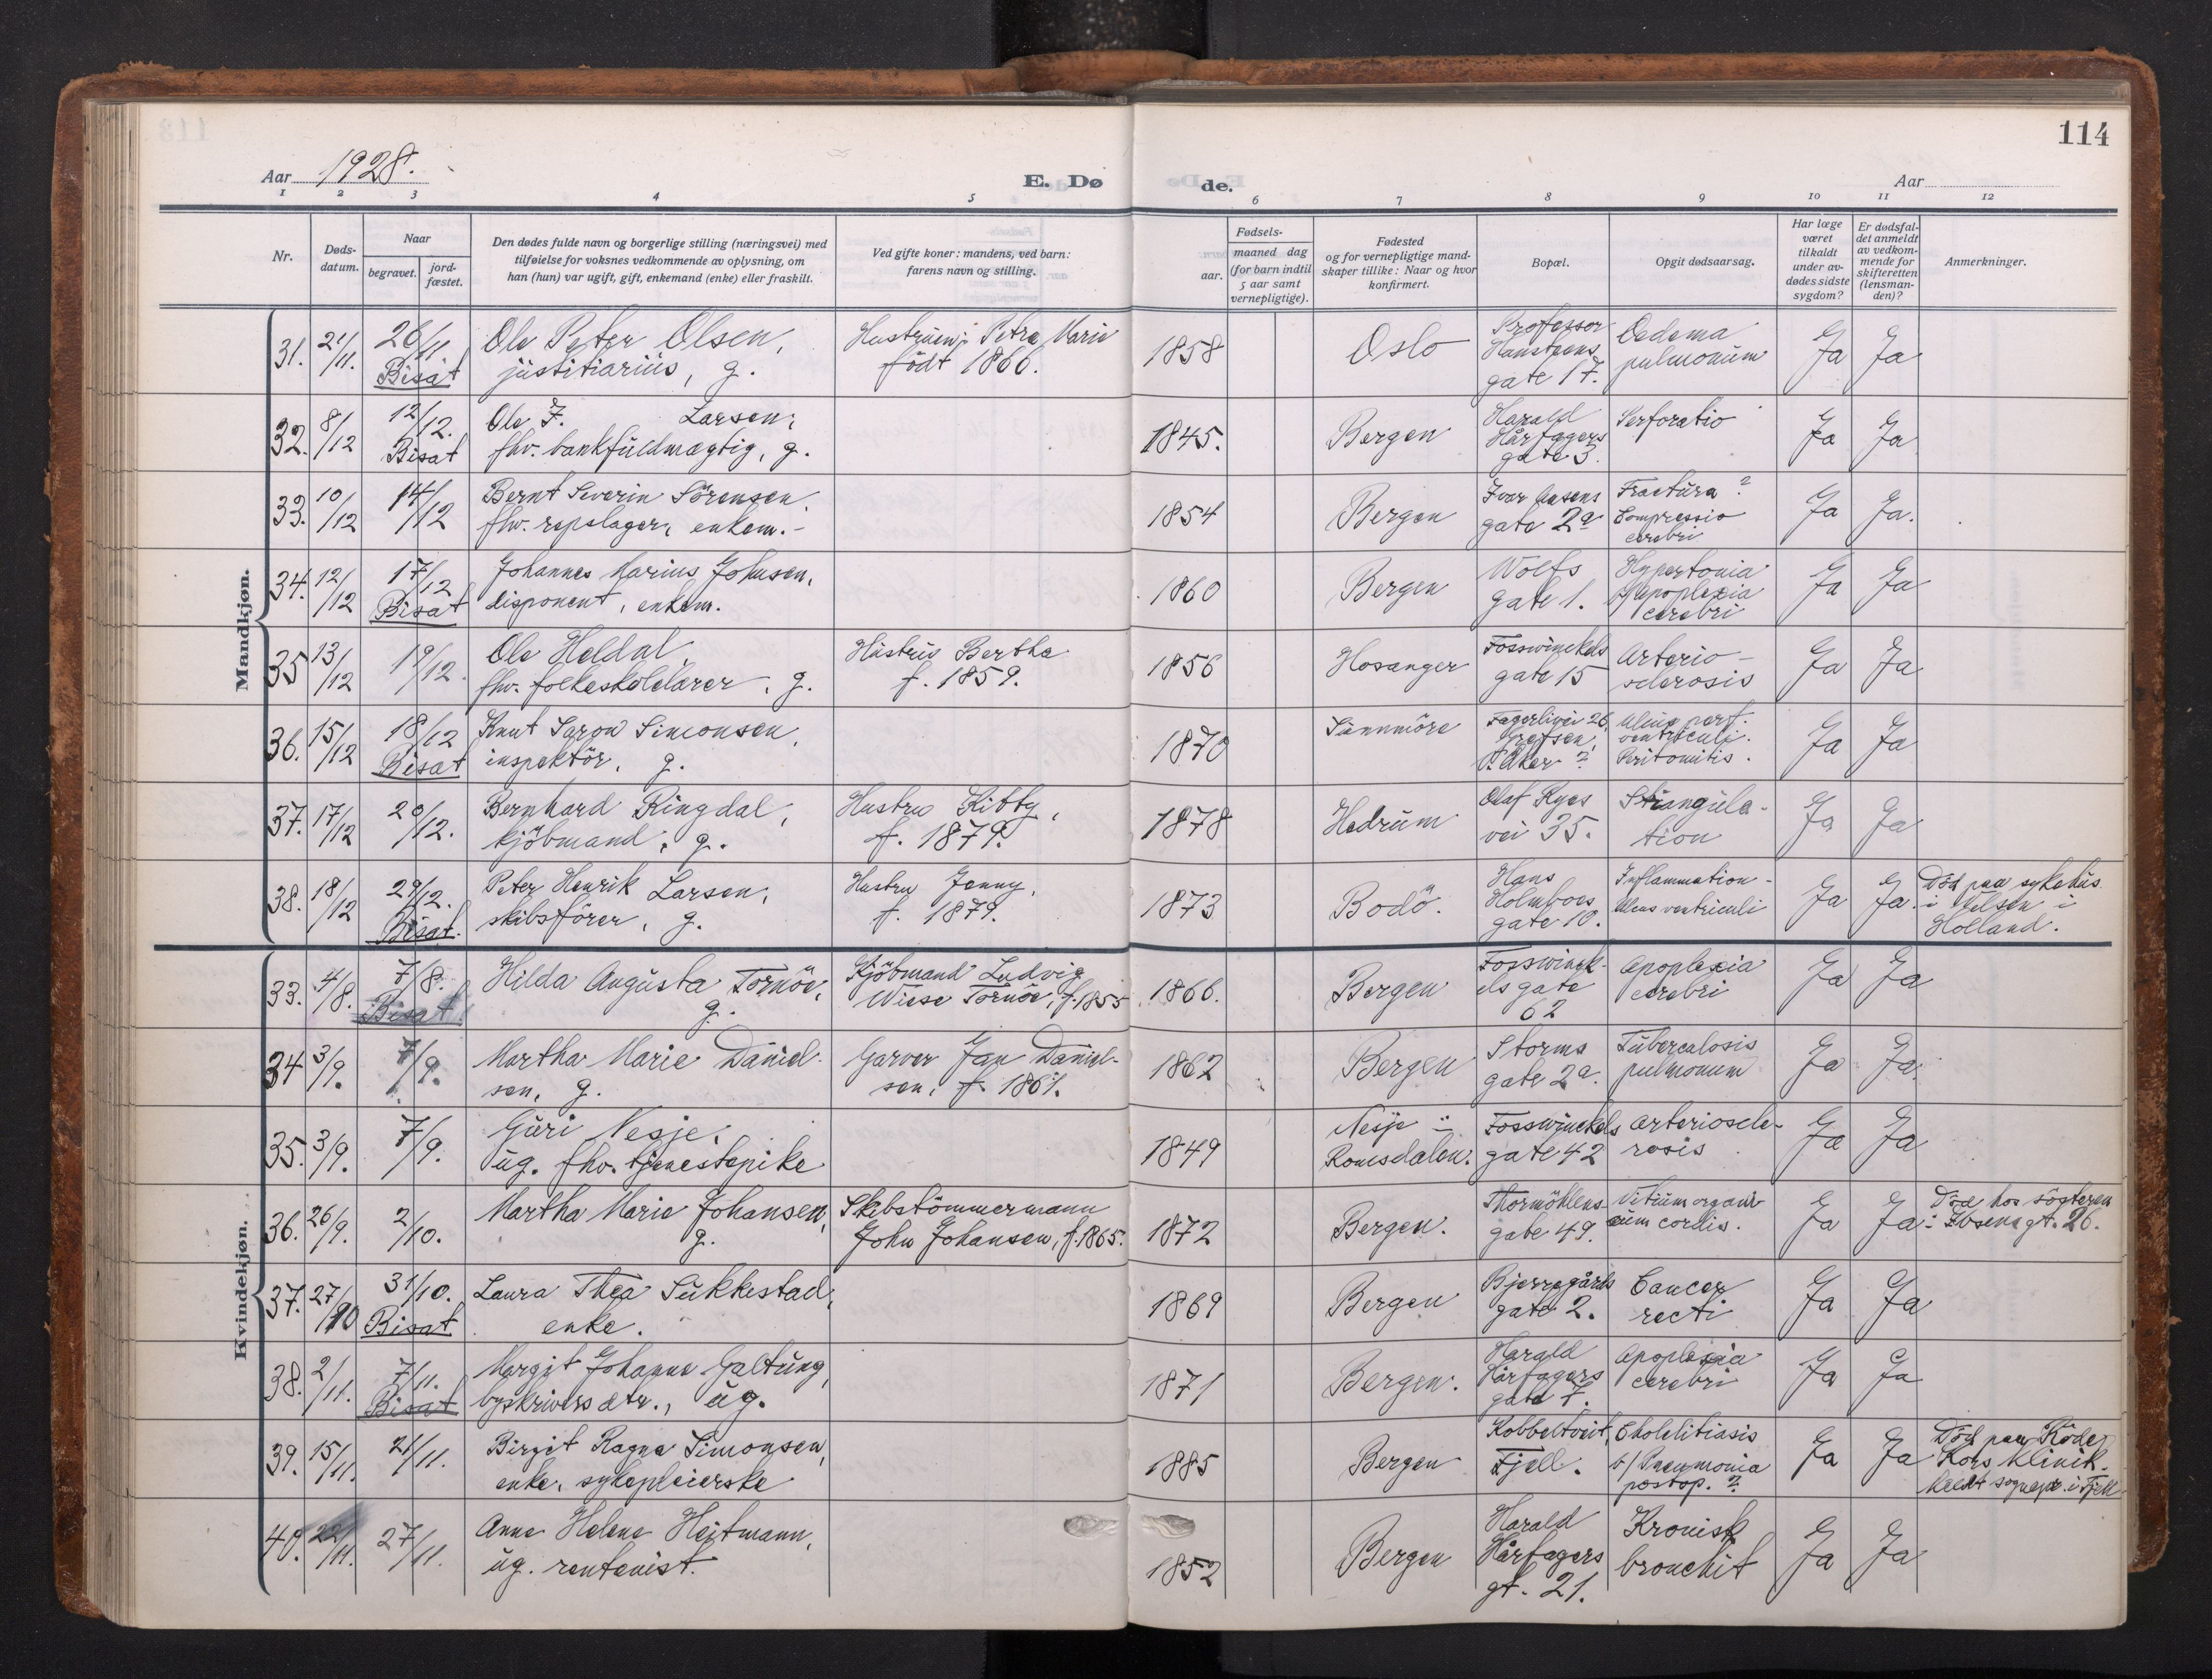 114
Aar 1928.
E. Dø
de.
Aar
1 2 3 4 5 6 7 8 9 10 11 12
Nr.
Døds-
datum.
Naar
begravet.
jord-
fæstet.
Den dødes fulde navn og borgerlige stilling (næringsvei) med
tilføielse for voksnes vedkommende av oplysning, om
han (hun) var ugift, gift, enkemand (enke) eller fraskilt.
Ved gifte koner: mandens, ved barn:
farens navn og stilling.
Fødsels-
aar.
maaned dag
(for barn indtil
5 aar samt
vernepligtige).
Fødested
og for vernepligtige mand-
skaper tillike: Naar og hvor
konfirmert.
Bopæl.
Opgit dødsaarsag.
Har læge
været
tilkaldt
under av-
dødes sidste
sygdom?
Er dødsfal-
det anmeldt
av vedkom-
mende for
skifteretten
(lensman-
den)?
Anmerkninger.
Mandkjøn.
31. 21/11. 26/11. Bisat
Ole Peter Olsen,
justitiarius, g.
Hustruen: Petra Marie
født 1866.
1858 Oslo
Professor
Hansteens
gate 17.
Oedema
pulmonum
Ja Ja
32. 8/12 12/12. Bisat
Ole F. Larsen,
fhv. bankfuldmægtig, g.
1845. Bergen
Harald
Hårfagers
gate 3.
Perforatio
Ja Ja
33. 10/12 14/12
Bernt Severin Sörensen.
fhv. repslager, enkem.-
1854 Bergen
Ivar Aasens
gate 2a
Fractura ?
Compressio
cerebri
Ja Ja.
34. 12/12 17/12 Bisat
Johannes Marius Johnsen,
disponent, enkem.
1860 Bergen
Wolfs
gate 1.
Hypertonia
Apoplexia
cerebri
Ja Ja
35 13/12 19/12.
Ole Heldal,
fhv. folkeskolelærer, g.
Hustru Bertha
f. 1859.
1856 Hosanger
Fosswinckels
gate 15
Arterio-
sclerosis
Ja Ja
36. 15/12 18/12 Bisat
Knut Saron Simonsen,
inspektör, g.
1870 Sunnmöre
Fagerlivei 26,
Grefsen,
V. Aker ?
Ulcus perf.
ventriculi.
Peritonitis.
Ja Ja
37. 17/12 20/12.
Bernhard Ringdal,
kjöbmand, g.
Hustru Kitty,
f. 1879.
1878 Hedrum
Olaf Ryes
vei 35.
Strangula-
tion
Ja Ja
38. 18/12 29/12. Bisat.
Peter Henrik Larsen,
skibsförer, g.
Hustru Jenny,
f. 1879.
1873 Bodö.
Hans
Holmboes
gate 10.
Inflammation-
Ulcus ventriculi
Ja Ja.
Död paa sykehus
i Velsen i
Holland.
Kvindekjøn.
33. 4/8. 7/8. Bisat
Hilda Augusta Tornöe,
g.
Kjöbmand Ludvig
Wiese Tornöe, f. 1855
1866. Bergen
Fosswinck-
els gate
62
Apoplexia
cerebri
Ja Ja
34 3/9. 7/9.
Martha Marie Daniel-
sen, g.
Garver Jan Daniel-
sen, f. 1861.
1862 Bergen
Storms
gate 2a.
Tuberculosis
pulmonum
Ja Ja.
35. 3/9. 7/9.
Guri Nesje,
ug. fhv. tjenestepike
1849
Nesje i
Romsdalen.
Fosswinckels
gate 42
Arteriosele-
rosis
Ja Ja
36. 26/9. 2/10.
Martha Marie Johansen,
g.
Skibstömmermann
John Johansen, f. 1865.
1872 Bergen.
Thormöhlens-
gate 49.
Vitium organi-
cum cordis.
Ja Ja
Död hos sösteren
: Ibsens gt. 26.
37. 27/10 31/10. Bisat
Laura Thea Sukkestad,
enke.
1869 Bergen
Bjerregårds
gate 2.
Cancer
recti
Ja Ja
38. 2/11. 7/11. Bisat
Margit Johanne Galtung,
byskrivers dtr., ug.
1871 Bergen.
Harald
Hårfagers
gate 7.
Apoplexia
cerebri
Ja Ja
39. 15/11. 21/11.
Birgit Ragna Simonsen,
enke, sykepleierske
1885 Bergen
Kobbeltveit,
Fjell.
Cholelitiasis
b/ Pneumonia
postop. ?
Ja Ja
Död paa Röde
Kors Klinik.
Meldt sognepr. i Fjell
40. 22/11. 27/11.
Anna Helene Heitmann,
ug. rentenist.
1852 Bergen
Harald
Hårfagers
gt. 21.
Kronisk
bronchit
Ja Ja